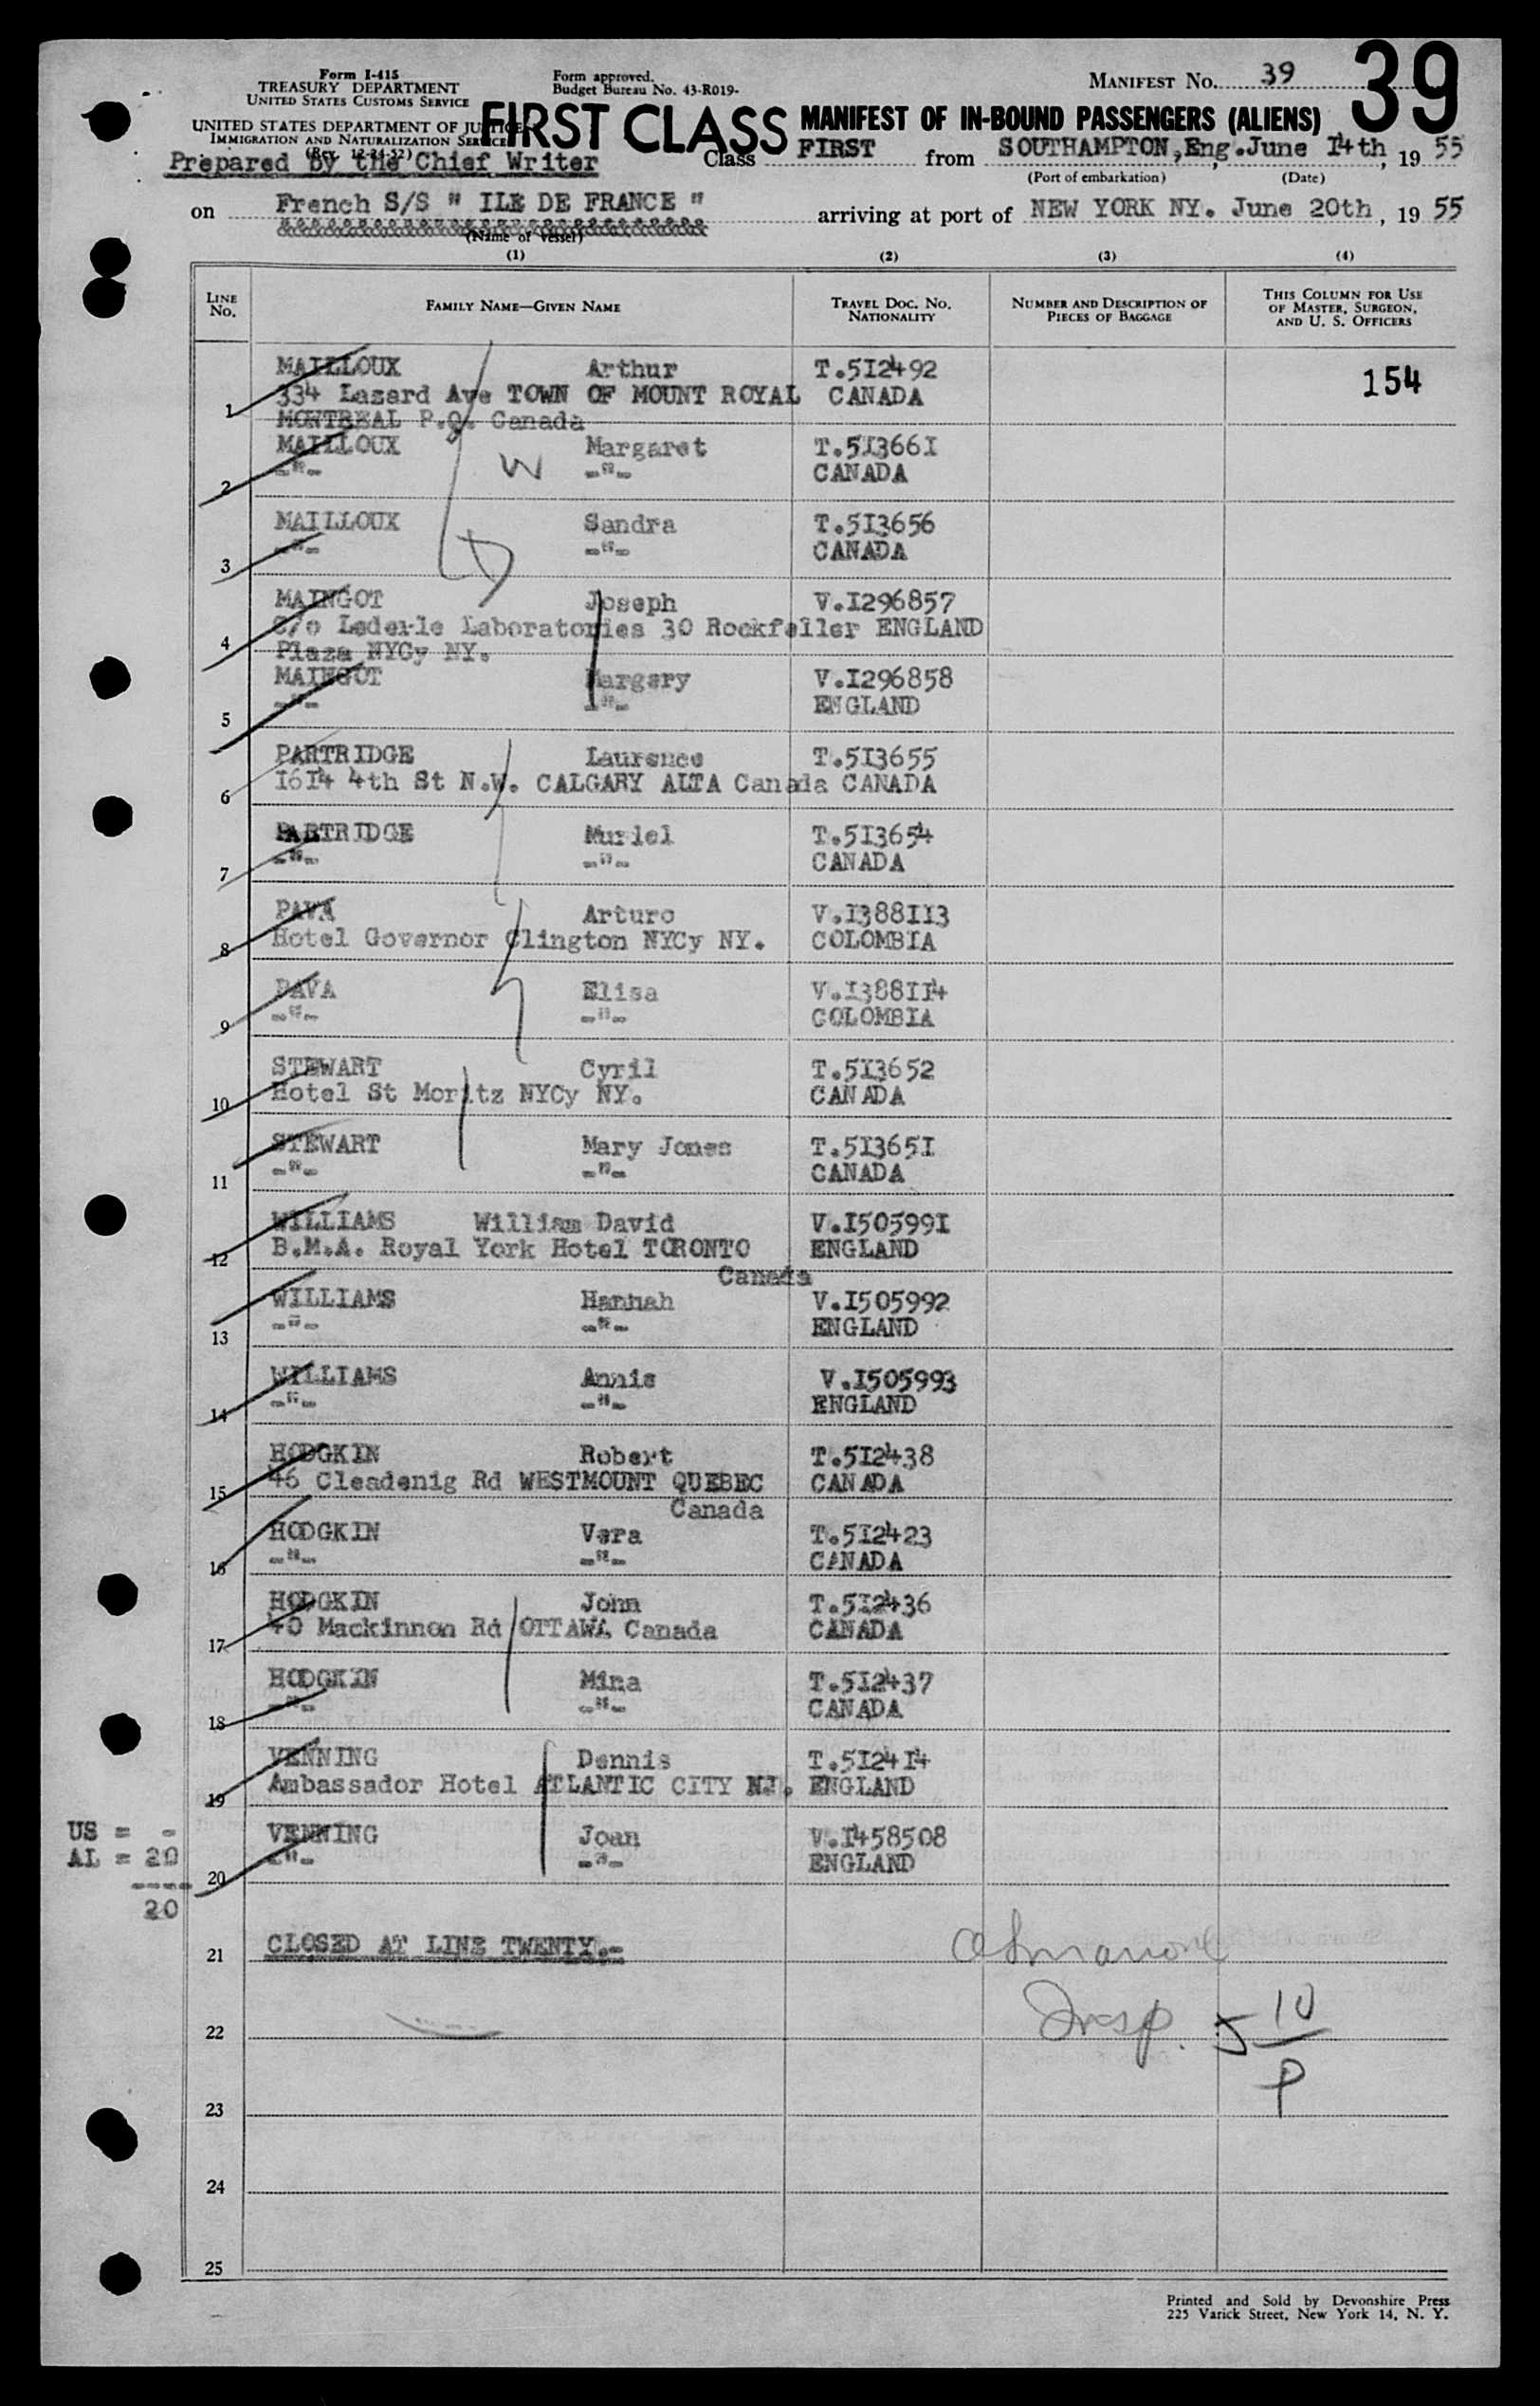 Form I-415
TREASURY DEPARTMENT
UNITED STATES CUSTOMS SERVICE
UNITED STATES DEPARTMENT OF JUSTICE
IMMIGRATION AND NATURALIZATION SERVICE
(Rev. 12-24-52)
Prepared by the Chief Writer
Form approved.
Budget Bureau No. 43-R019-
MANIFEST No. 39
39
FIRST CLASS MANIFEST OF IN-BOUND PASSENGERS (ALIENS)
Class FIRST from SOUTHAMPTON,Eng. June 14th, 19 55
(Port of embarkation) (Date)
on French S/S " ILE DE FRANCE " arriving at port of NEW YORK NY. June 20th, 19 55
(Name of vessel)
(1) (2) (3) (4)
LINE No. FAMILY NAME—GIVEN NAME TRAVEL DOC. No. NATIONALITY NUMBER AND DESCRIPTION OF PIECES OF BAGGAGE THIS COLUMN FOR USE OF MASTER, SURGEON, AND U. S. OFFICERS
MAILLOUX Arthur T.512492 154
1 334 Lazard Ave TOWN OF MOUNT ROYAL CANADA
MONTREAL P.Q. Canada
MAILLOUX Margaret T.513661
2 -"- W -"- CANADA
MAILLOUX Sandra T.513656
3 -"- -"- CANADA
MAINGOT Joseph V.1296857
4 C/o Lederle Laboratories 30 Rockfeller ENGLAND
Plaza NYCy NY.
MAINGOT Margery V.1296858
5 -"- -"- ENGLAND
PARTRIDGE Laurence T.513655
6 1614 4th St N.W. CALGARY ALTA Canada CANADA
PARTRIDGE Muriel T.513654
7 -"- -"- CANADA
PAVA Arturo V.1388113
8 Hotel Governor Clington NYCy NY. COLOMBIA
PAVA Elisa V.1388114
9 -"- -"- COLOMBIA
STEWART Cyril T.513652
10 Hotel St Moritz NYCy NY. CANADA
STEWART Mary Jones T.513651
11 -"- -"- CANADA
WILLIAMS William David V.1505991
12 B.M.A. Royal York Hotel TORONTO ENGLAND
Canada
WILLIAMS Hannah V.1505992
13 -"- -"- ENGLAND
WILLIAMS Annis V.1505993
14 -"- -"- ENGLAND
HODGKIN Robert T.512438
15 46 Cleadenig Rd WESTMOUNT QUEBEC CANADA
Canada
HODGKIN Vera T.512423
16 -"- -"- CANADA
HODGKIN John T.512436
17 40 Mackinnon Rd OTTAWA Canada CANADA
HODGKIN Mina T.512437
18 -"- -"- CANADA
VENNING Dennis T.512414
19 Ambassador Hotel ATLANTIC CITY NJ. ENGLAND
US = - VENNING Joan V.1458508
AL = 20 20 -"- -"- ENGLAND
----
20
21 CLOSED AT LINE TWENTY.-
22 Insp. 5 10/P
23
24
25
Printed and Sold by Devonshire Press
225 Varick Street, New York 14, N. Y.